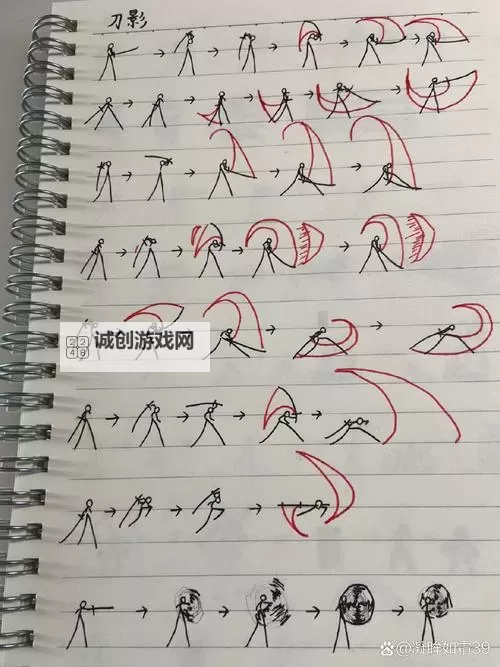 刀影
诚创游戏网
@凝眸如霜39